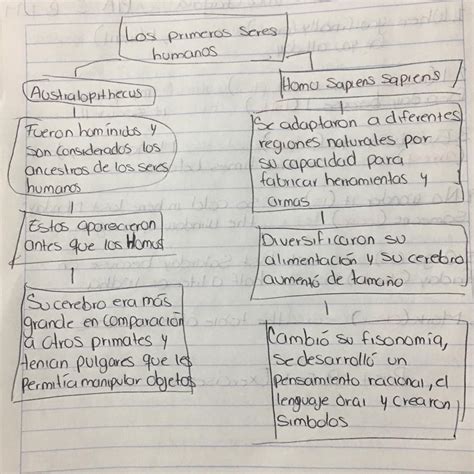 Los primeros seres
humanos
Australopithecus
Fueron homínidos y
son considerados los
ancestros de los seres
humanos
Estos aparecieron
antes que los Homus
Su cerebro era más
grande en comparación
a otros primates y
tenían pulgares que les
permitía manipular objetos
Homo sapiens sapiens
Se adaptaron a diferentes
regiones naturales por
su capacidad para
fabricar herramientas y
armas
Diversificaron su
alimentación y su cerebro
aumentó de tamaño
Cambió su fisonomía,
se desarrolló un
pensamiento racional, el
lenguaje oral y crearon
símbolos